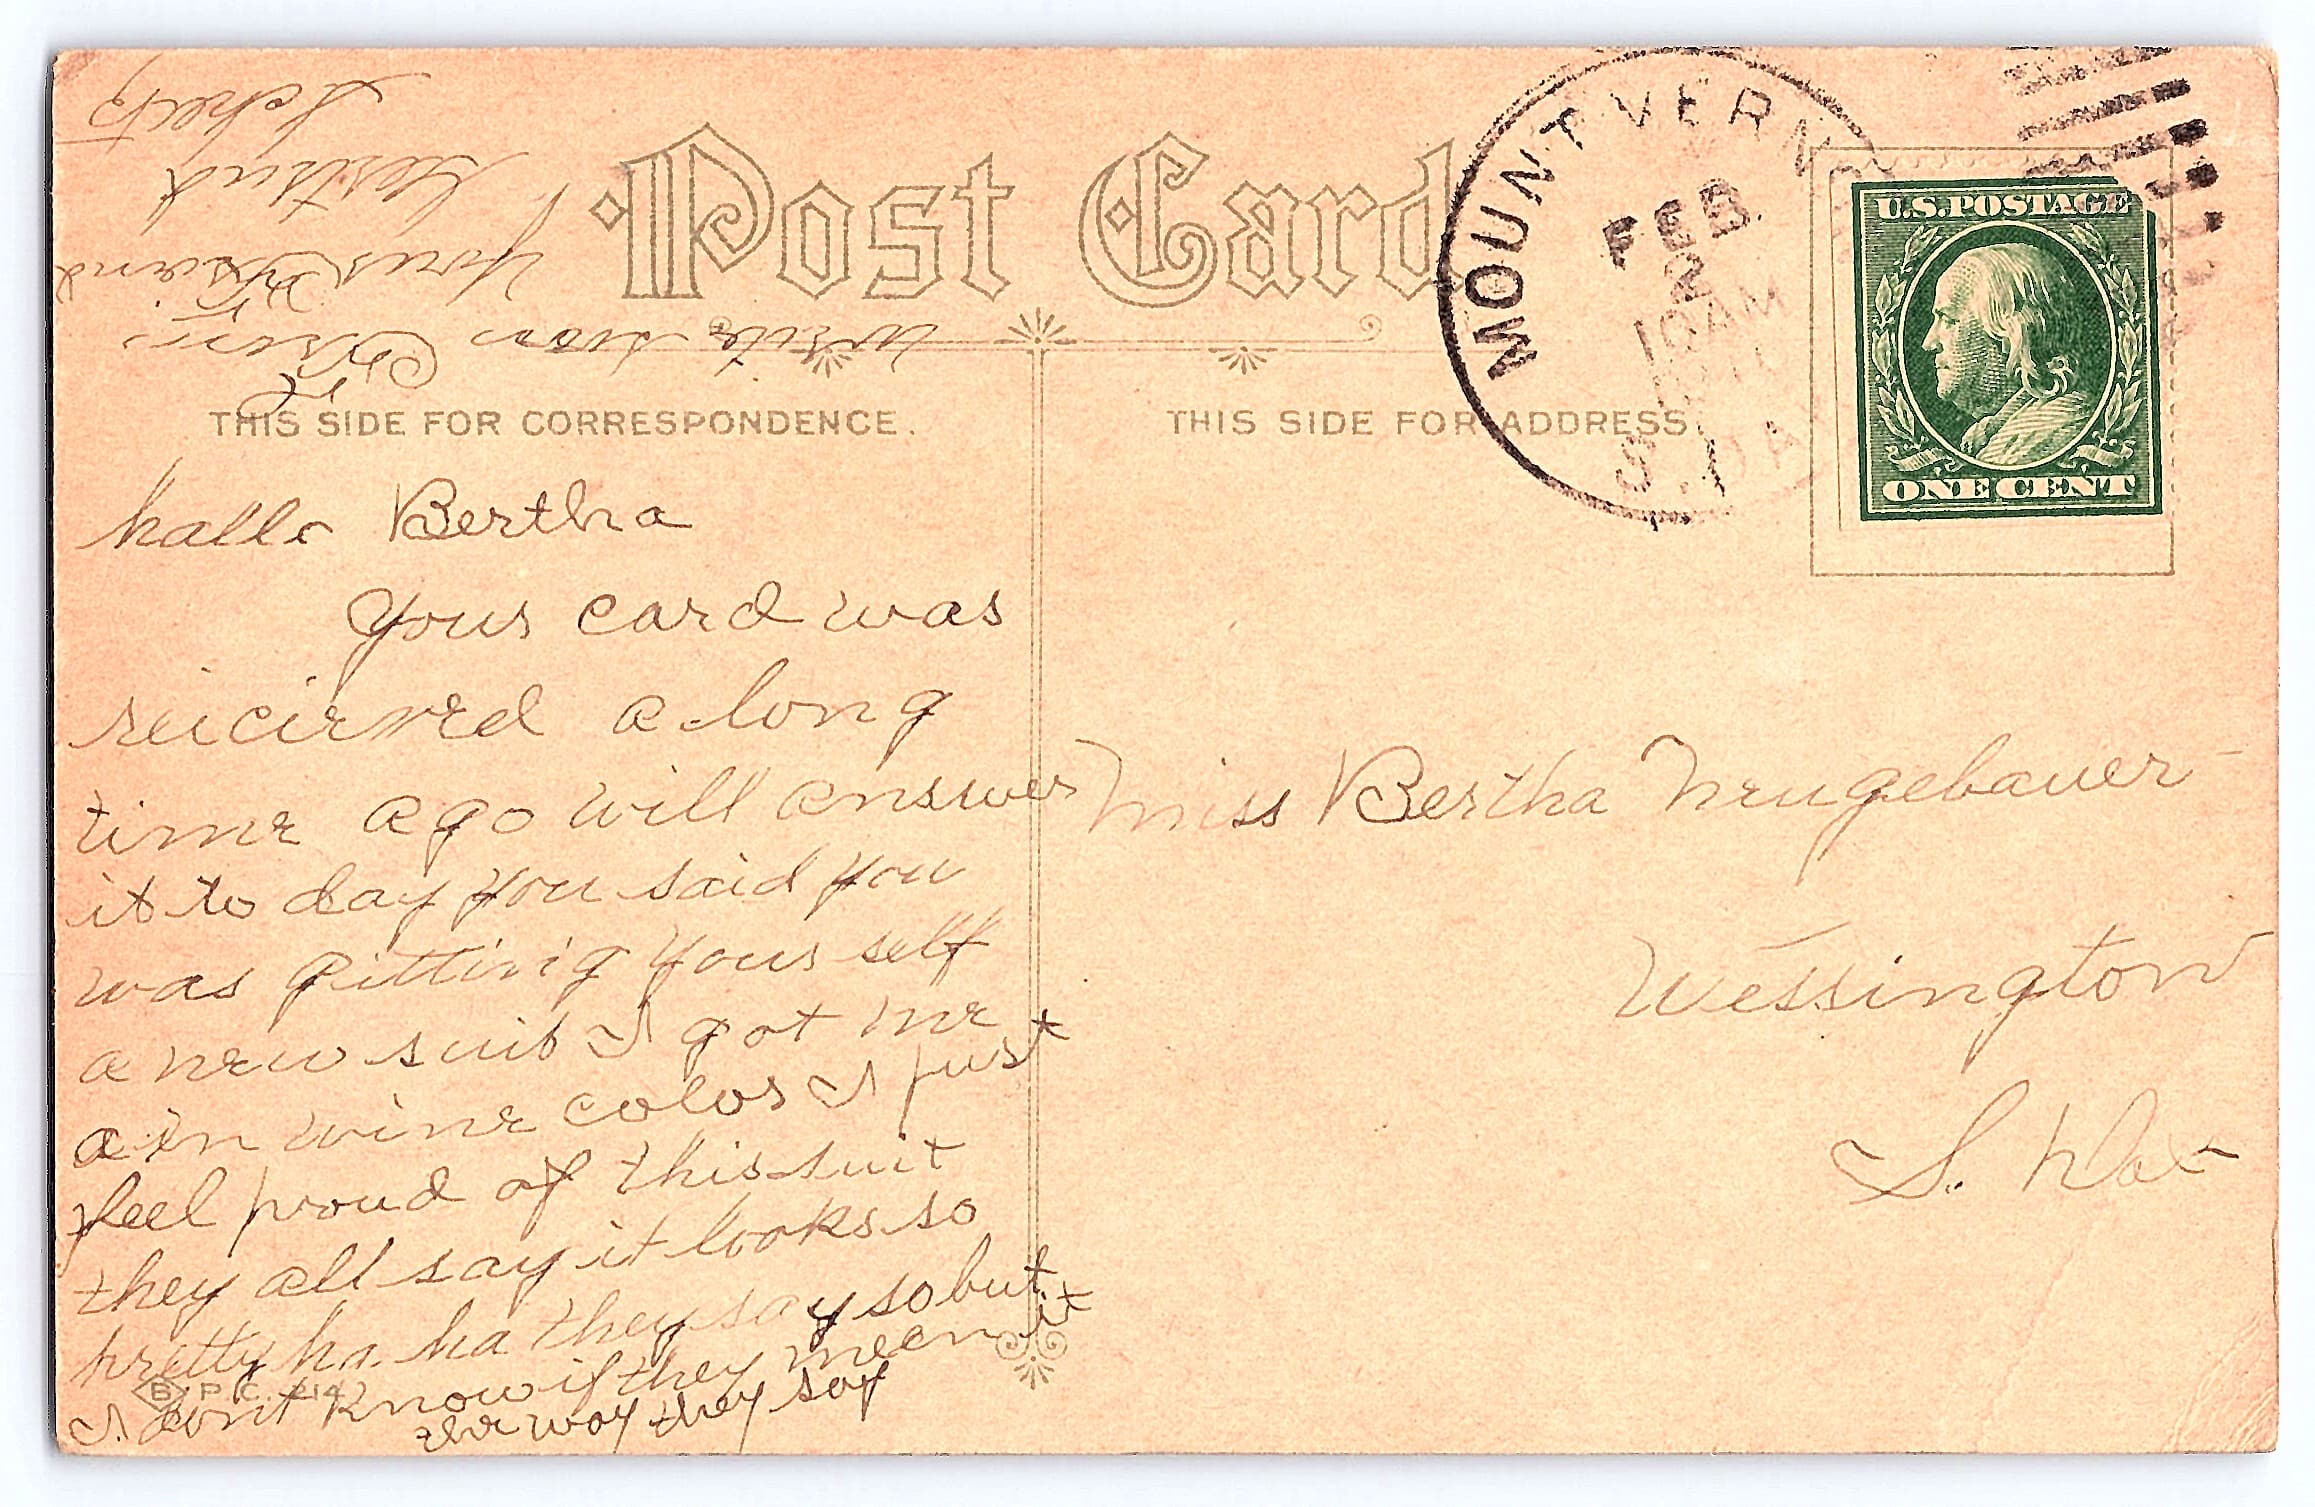 Post Card
MOUNT VERN
FEB
2
10 AM
S.
U.S. POSTAGE
ONE CENT
THIS SIDE FOR CORRESPONDENCE.
THIS SIDE FOR ADDRESS.
hallo Bertha
Your card was
reicieved a long
time ago will answer
it to day you said you
was gitting your self
a new suit I got me
a in wine color I just
feel proud of this suit
they all say it looks so
pretty ha. ha they say so but
I dont know if they meen it
the way they say
write soon
Your Friend
Gertrud
Scheetz
Miss Bertha Neugebauer
Wessington
S. Dak
B P.C. 214